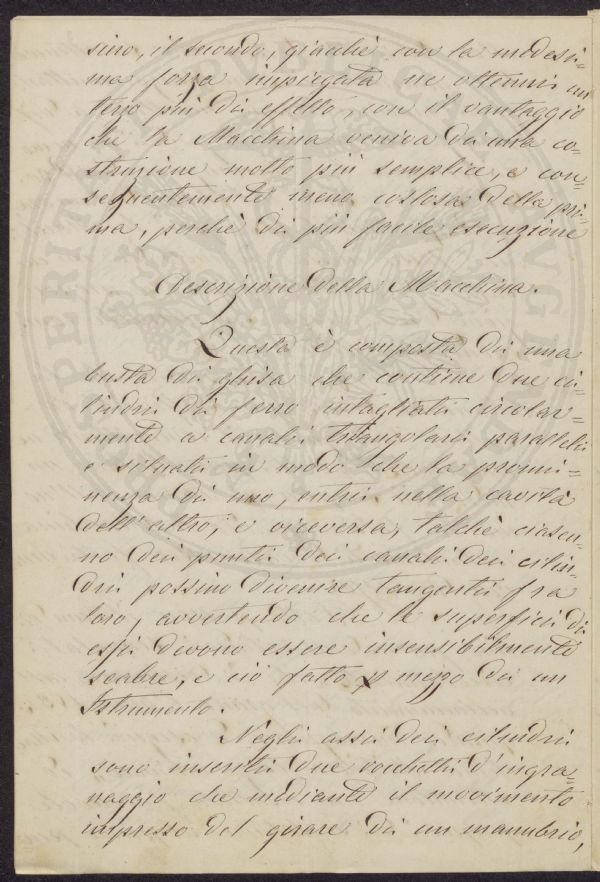 sino, il secondo, giacchè con la medesi=
ma forza impiegata ne ottenni un
terzo più di effetto, con il vantaggio
che la Macchina veniva di una co=
struzione molto più semplice, e con=
seguentemente meno costosa della pri=
ma, perchè di più facile esecuzione
Descrizione della Macchina.
Questa è composta di una
busta di ghisa che contiene due ci=
lindri di ferro intagliati circolar=
mente a canali triangolari paralleli
e situati in modo che la promi=
nenza di uno, entri nella cavità
dell'altro, e viceversa, talchè ciascu=
no dei punti dei canali dei cilin=
dri possino divenire tangenti fra
loro, avvertendo che le superficii di
essi devono essere insensibilmente
scabre, e ciò fatto p mezzo di un
Istrumento.
Negli assi dei cilindri
sono inseriti due rocchetti d'ingra=
naggio che mediante il movimento
impresso del girare di un manubrio,